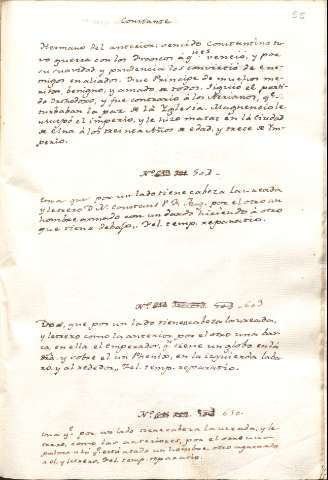 55
Constante
Hermano del anterior: vencido Constantino tu-
vo guerra con los Francos á qnes vencio, y por
su suavidad y prudencia los convirtió de ene-
migos en aliados. Fue Principe de muchos me-
ritos, benigno, y amado de todos. Siguió el parti-
do Orthodoxo, y fue contrario à los Arrianos, qe.
turbaban la paz de la Yglesia. Magnencio le
usurpó el imperio, y le hizo matar en la Ciudad
de Elna à los treinta Años de edad, y trece de Im-
perio.
Nº 501.
Una que por un lado tiene cabeza Laureada
y letrero D. N. Constans P. F. Aug. por el otro un
hombre armado con un dardo hiriendo à otro
que tiene debajo. Fel. temp. reparatio.
Nº 603
Dos, que por un lado tienen cabeza laureada,
y letrero como la anterior, por el otro una bar-
ca, en ella el Emperador, qe. tiene un globo en la
y sobre el un Phenix, en la izquierda laba-
ro, y al rededor Fel. temp. reparatio.
Nº 610.
Una qe. por un lado tiene cabeza laureada, y le-
trero, como las anteriores, por el otro una
palma a la qe. está atado un hombre, otro
el, y letrero Fel. temp. reparatio.